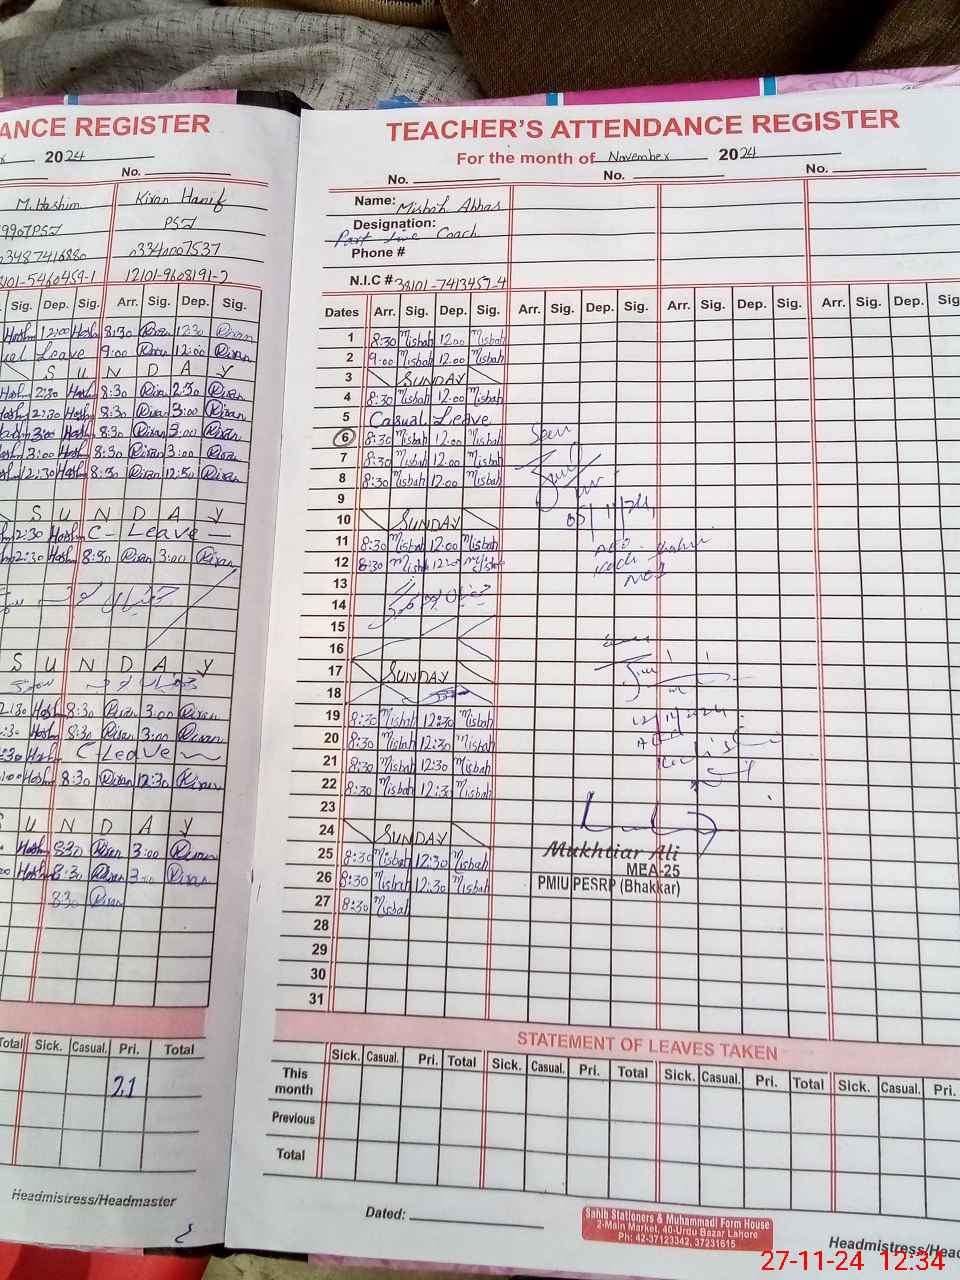 ANCE REGISTER
2024
No.
M. Hashim Kiran Hanif
PST
03487416880 03340007537
8101-5460459-1 12101-9608191-2
Sig. Dep. Sig. Arr. Sig. Dep. Sig.
Hashm 12:00 Hash 8:30 Kiran 12:30 Kiran
ual Leave 9:00 Kiran 12:00 Kiran
S U N D A Y
Hash 2:30 Hash 8:30 Kiran 2:30 Kiran
Hash 2:30 Hash 8:30 Kiran 3:00 Kiran
3:00 Hash 8:30 Kiran 3:00 Kiran
3:00 Hash 8:30 Kiran 3:00 Kiran
12:30 Hash 8:30 Kiran 12:30 Kiran
S U N D A Y
2:30 Hashm C- Leave
2:30 Hash 8:30 Kiran 3:00 Kiran
S U N D A Y
2:30 Hash 8:30 Kiran 3:00 Kiran
Hash 8:30 Kiran 3:00 Kiran
Hash C Leave
Hash 8:30 Kiran 12:30 Kiran
U N D A Y
Hash 8:30 Kiran 3:00 Kiran
Hash 8:30 Kiran Kiran
8:30 Kiran
Total Sick. Casual. Pri. Total
21
Headmistress/Headmaster
TEACHER'S ATTENDANCE REGISTER
For the month of November 2024
No. No. No.
Name: Misbah Abbas
Designation:
Part time Coach
Phone #
N.I.C # 38101-7413457-4
Dates Arr. Sig. Dep. Sig. Arr. Sig. Dep. Sig. Arr. Sig. Dep. Sig. Arr. Sig. Dep. Sig
1 8:30 Misbah 12:00 Misbah
2 9:00 Misbah 12:00 Misbah
3 SUNDAY
4 8:30 Misbah 12:00 Misbah
5 Casual Leave
6 8:30 Misbah 12:00 Misbah
7 8:30 Misbah 12:00 Misbah
8 8:30 Misbah 12:00 Misbah
9
10 SUNDAY
11 8:30 Misbah 12:00 Misbah
12 8:30 Misbah 12:00 Misbah
13
14
15
16
17 SUNDAY
18
19 8:30 Misbah 12:30 Misbah
20 8:30 Misbah 12:30 Misbah
21 8:30 Misbah 12:30 Misbah
22 8:30 Misbah 12:30 Misbah
23
24 SUNDAY
25 8:30 Misbah 12:30 Misbah
26 8:30 Misbah 12:30 Misbah
27 8:30 Misbah
28
29
30
31
Mukhtiar Ali
MEA-25
PMIU PESRP (Bhakkar)
STATEMENT OF LEAVES TAKEN
Sick. Casual. Pri. Total Sick. Casual. Pri. Total Sick. Casual. Pri. Total Sick. Casual. Pri.
This month
Previous
Total
Dated:
Sahib Stationers & Muhammadi Form House
2-Main Market, 40-Urdu Bazar Lahore
Ph: 42-37123342, 37231615
Headmistress/Head
27-11-24 12:34